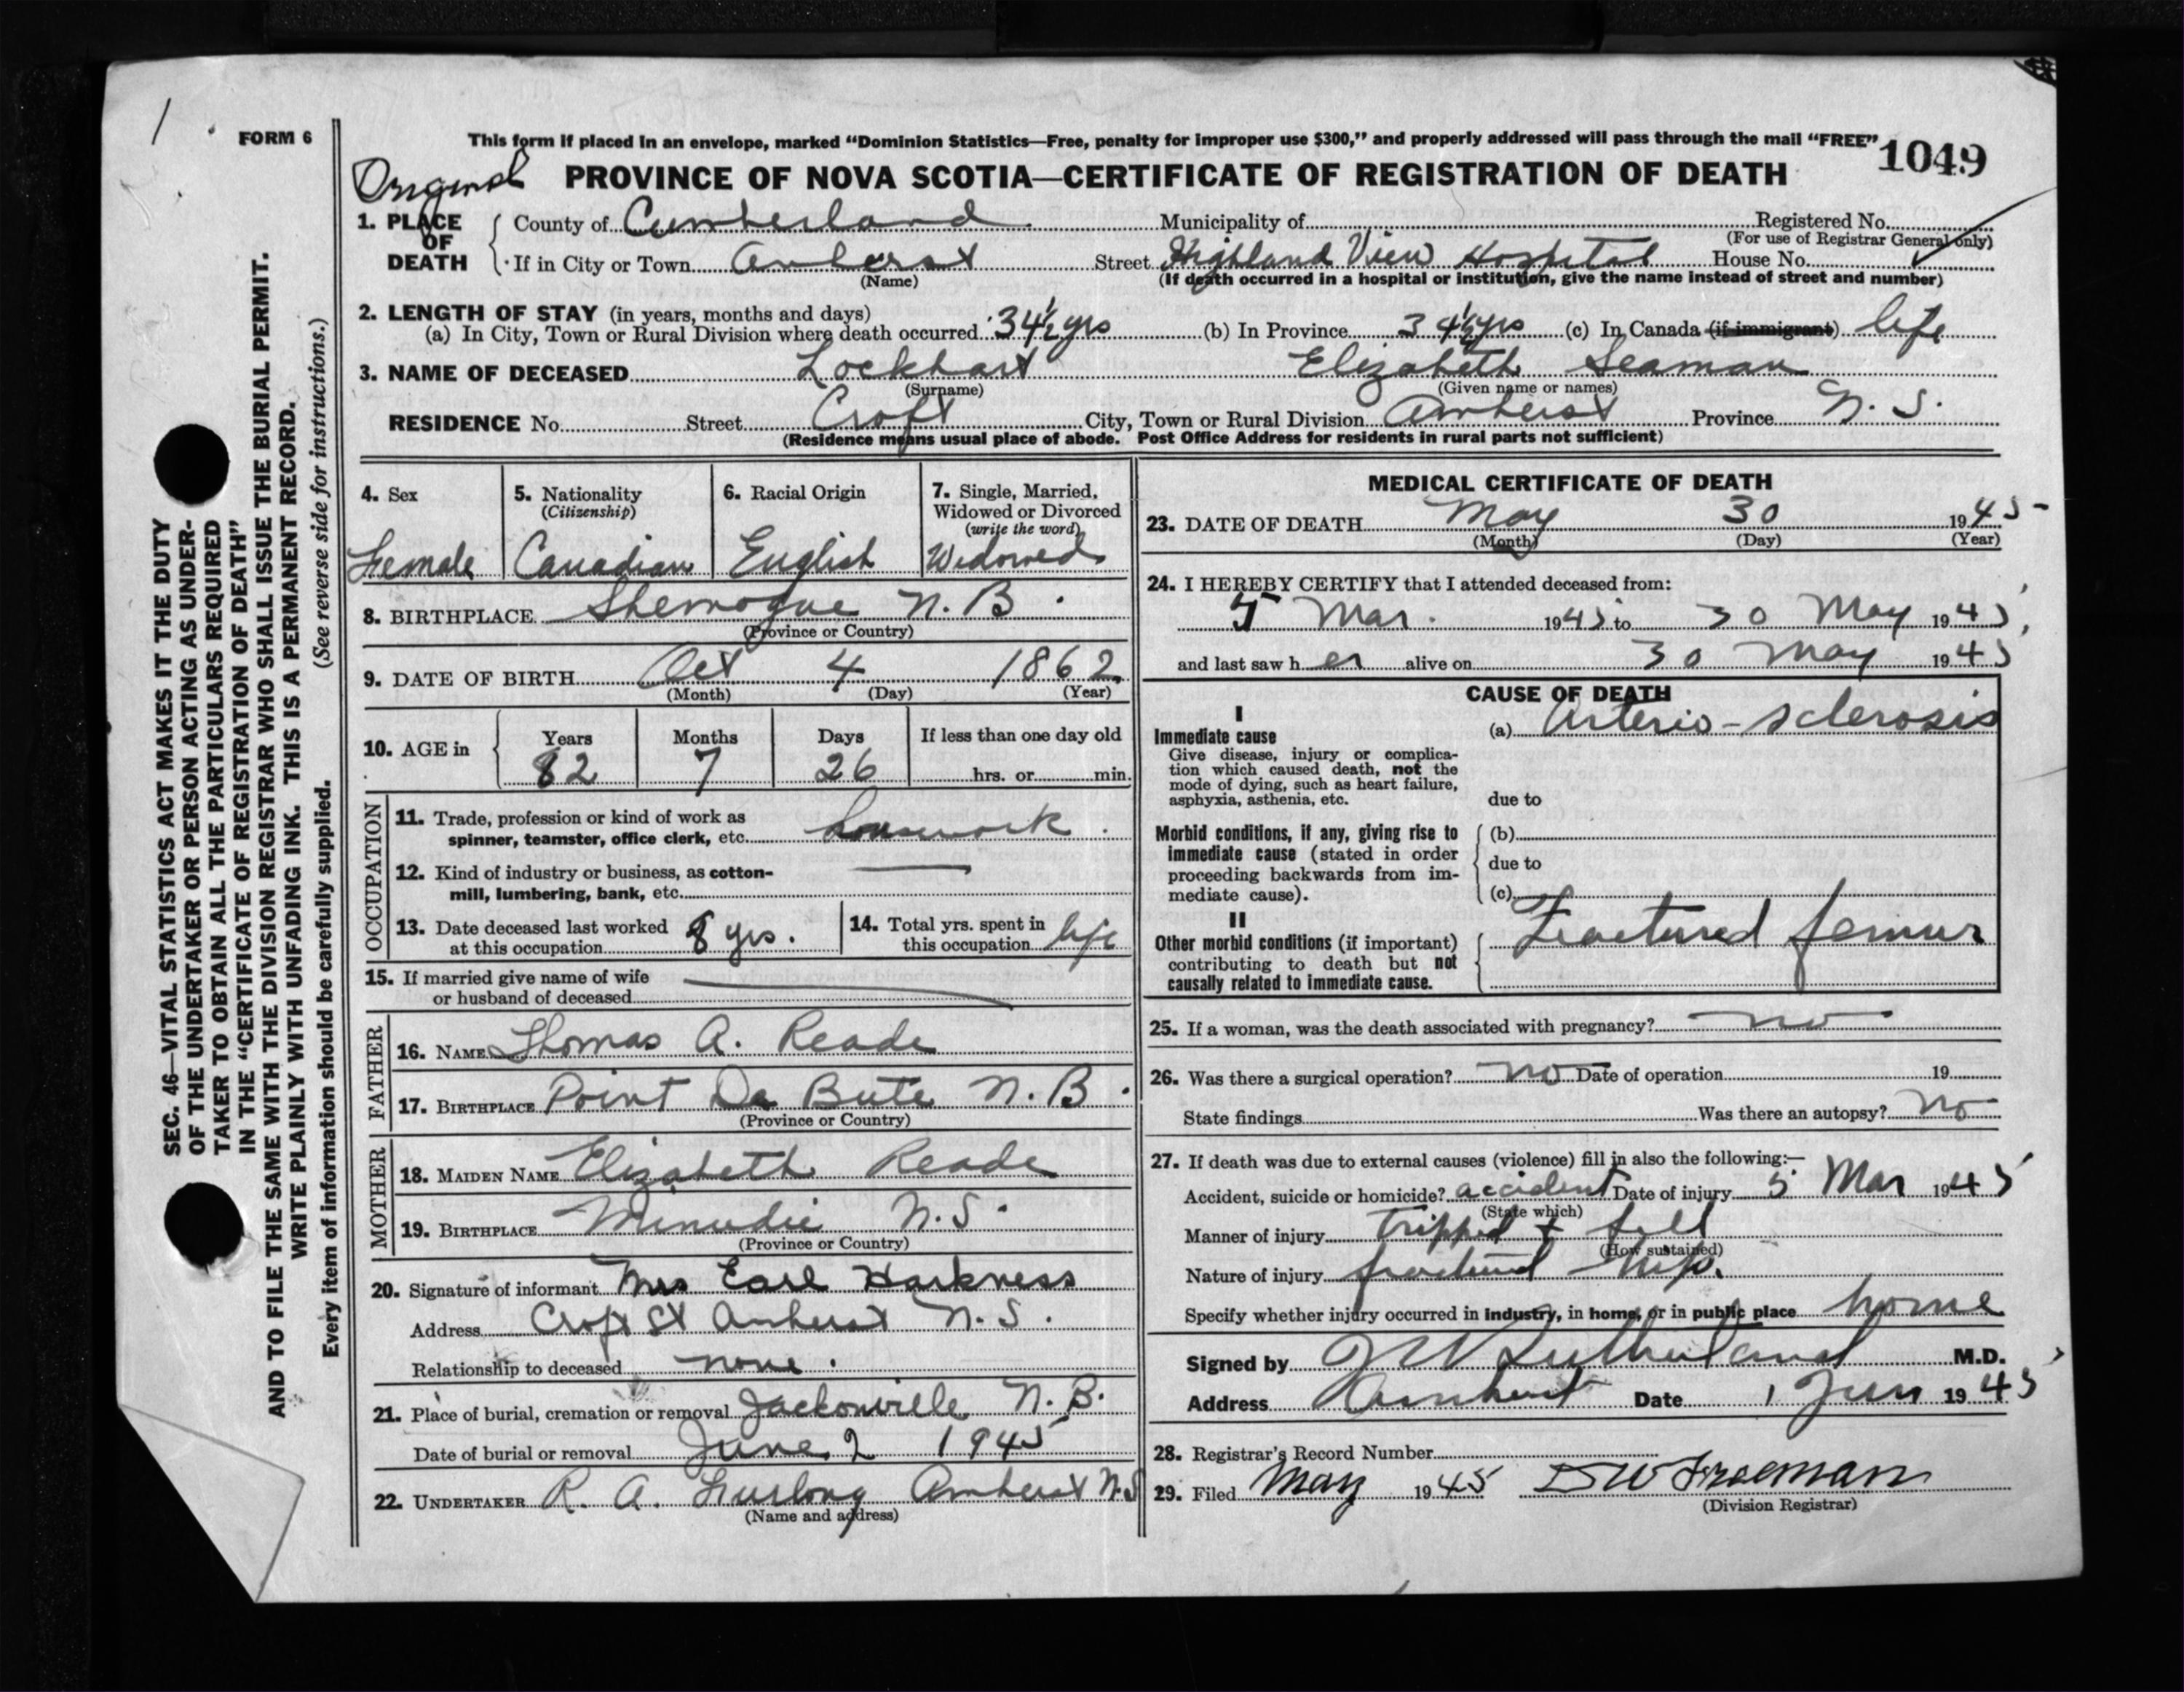 FORM 6
This form if placed in an envelope, marked “Dominion Statistics—Free, penalty for improper use $300,” and properly addressed will pass through the mail “FREE”
1049
Original
PROVINCE OF NOVA SCOTIA—CERTIFICATE OF REGISTRATION OF DEATH
1. PLACE OF DEATH
County of Cumberland Municipality of Registered No.
(For use of Registrar General only)
If in City or Town Amherst Street Highland View Hospital House No.
(Name) (If death occurred in a hospital or institution, give the name instead of street and number)
2. LENGTH OF STAY (in years, months and days)
(a) In City, Town or Rural Division where death occurred 34½ yrs (b) In Province 34½ yrs (c) In Canada (if immigrant) life
3. NAME OF DECEASED Lockhart Elizabeth Seaman
(Surname) (Given name or names)
RESIDENCE No. Street Croft City, Town or Rural Division Amherst Province N. S.
(Residence means usual place of abode. Post Office Address for residents in rural parts not sufficient)
4. Sex
Female
5. Nationality
(Citizenship)
Canadian
6. Racial Origin
English
7. Single, Married,
Widowed or Divorced
(write the word)
Widowed
8. BIRTHPLACE Shemogue N. B.
(Province or Country)
9. DATE OF BIRTH Oct 4 1862
(Month) (Day) (Year)
10. AGE in
Years Months Days If less than one day old
82 7 26 hrs. or min.
OCCUPATION
11. Trade, profession or kind of work as
spinner, teamster, office clerk, etc. housework
12. Kind of industry or business, as cotton-
mill, lumbering, bank, etc.
13. Date deceased last worked
at this occupation 8 yrs.
14. Total yrs. spent in
this occupation life
15. If married give name of wife
or husband of deceased
FATHER
16. NAME Thomas A. Reade
17. BIRTHPLACE Point De Bute N. B.
(Province or Country)
MOTHER
18. MAIDEN NAME Elizabeth Reade
19. BIRTHPLACE Minudie N. S.
(Province or Country)
20. Signature of informant Mrs Earl Harkness
Address Croft St Amherst N. S.
Relationship to deceased none.
21. Place of burial, cremation or removal Jackonville N. B.
Date of burial or removal June 2 1945
22. UNDERTAKER R. A. Furlong Amherst N.S
(Name and address)
MEDICAL CERTIFICATE OF DEATH
23. DATE OF DEATH May 30 1945
(Month) (Day) (Year)
24. I HEREBY CERTIFY that I attended deceased from:
5 Mar. 1945 to 30 May 1945
and last saw her alive on 30 May 1945
CAUSE OF DEATH
I
Immediate cause
Give disease, injury or complica-
tion which caused death, not the
mode of dying, such as heart failure,
asphyxia, asthenia, etc.
(a) Arterio-sclerosis
due to
Morbid conditions, if any, giving rise to
immediate cause (stated in order
proceeding backwards from im-
mediate cause).
(b)
due to
(c)
II
Other morbid conditions (if important)
contributing to death but not
causally related to immediate cause.
Fractured femur
25. If a woman, was the death associated with pregnancy? no
26. Was there a surgical operation? no Date of operation 19
State findings Was there an autopsy? no
27. If death was due to external causes (violence) fill in also the following:—
Accident, suicide or homicide? accident Date of injury 5 Mar 1945
(State which)
Manner of injury tripped & fell
(How sustained)
Nature of injury fractured hip.
Specify whether injury occurred in industry, in home, or in public place home
Signed by J W Sutherland M.D.
Address Amherst Date 1 Jun 1945
28. Registrar’s Record Number
29. Filed May 1945 D W Freeman
(Division Registrar)
SEC. 46—VITAL STATISTICS ACT MAKES IT THE DUTY
OF THE UNDERTAKER OR PERSON ACTING AS UNDER-
TAKER TO OBTAIN ALL THE PARTICULARS REQUIRED
IN THE “CERTIFICATE OF REGISTRATION OF DEATH”
AND TO FILE THE SAME WITH THE DIVISION REGISTRAR WHO SHALL ISSUE THE BURIAL PERMIT.
WRITE PLAINLY WITH UNFADING INK. THIS IS A PERMANENT RECORD.
Every item of information should be carefully supplied. (See reverse side for instructions.)